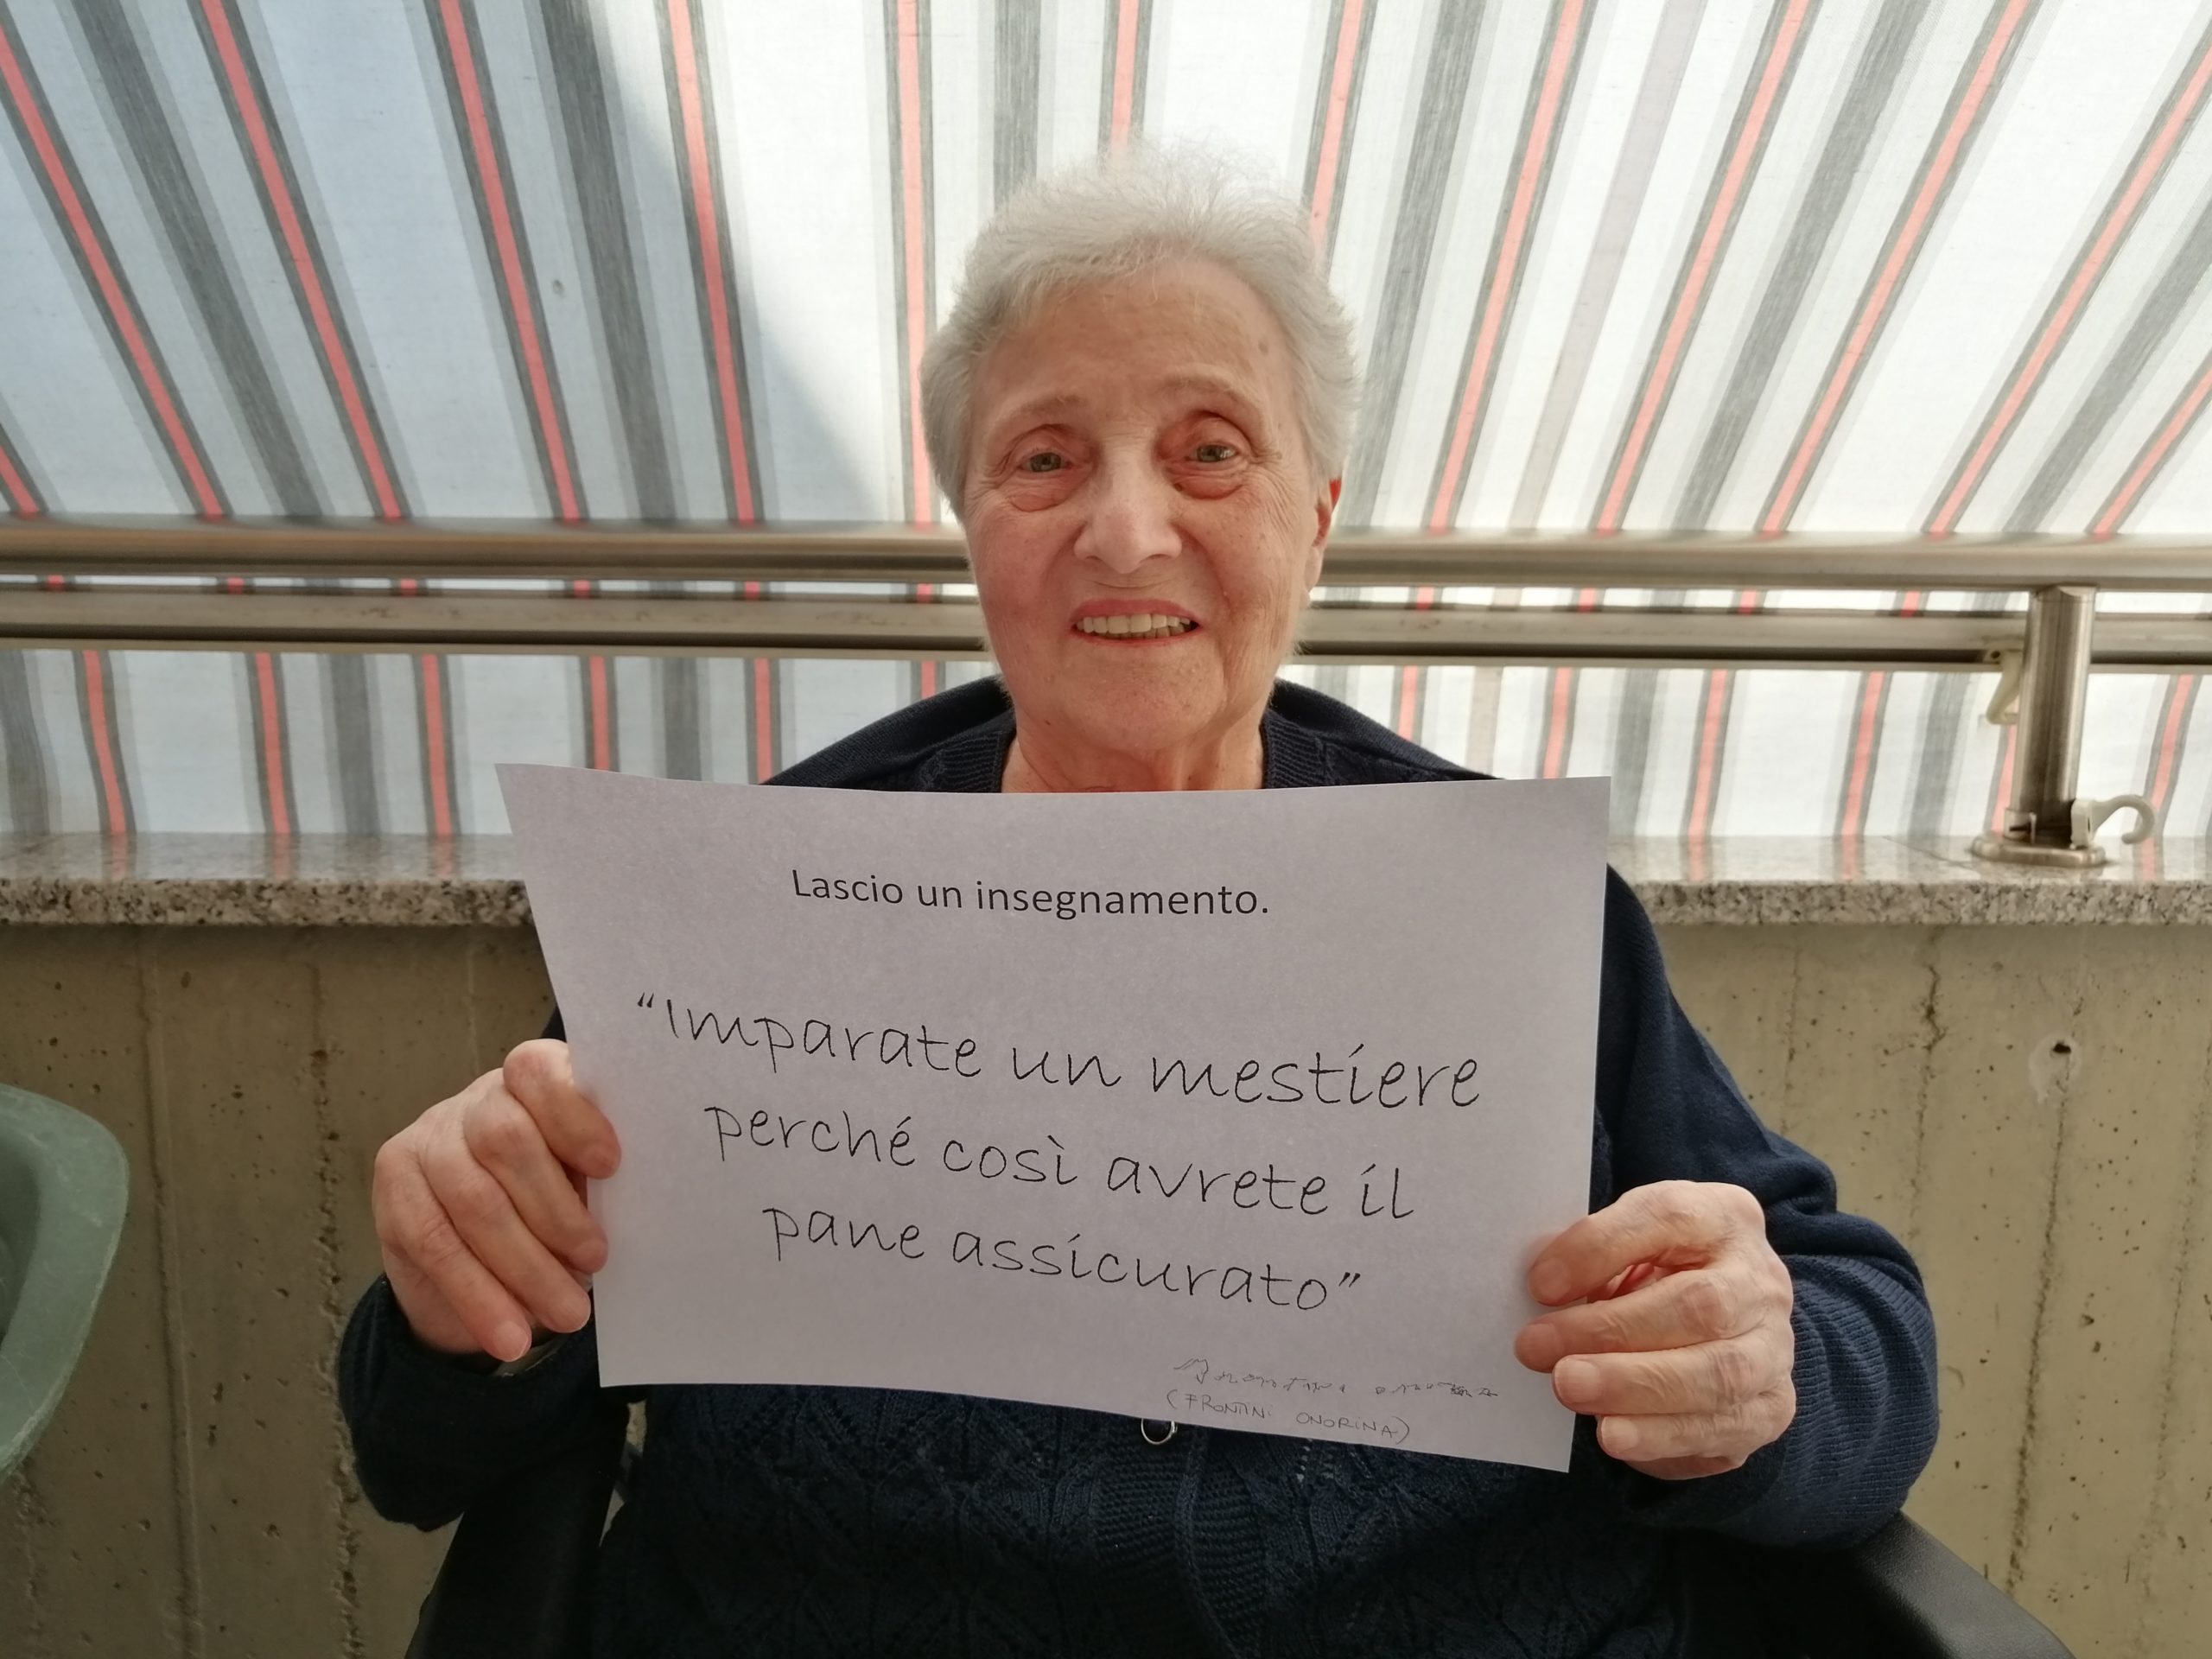 Lascio un insegnamento.
“Imparate un mestiere
perché così avrete il
pane assicurato”
(FRONTINI ONORINA)